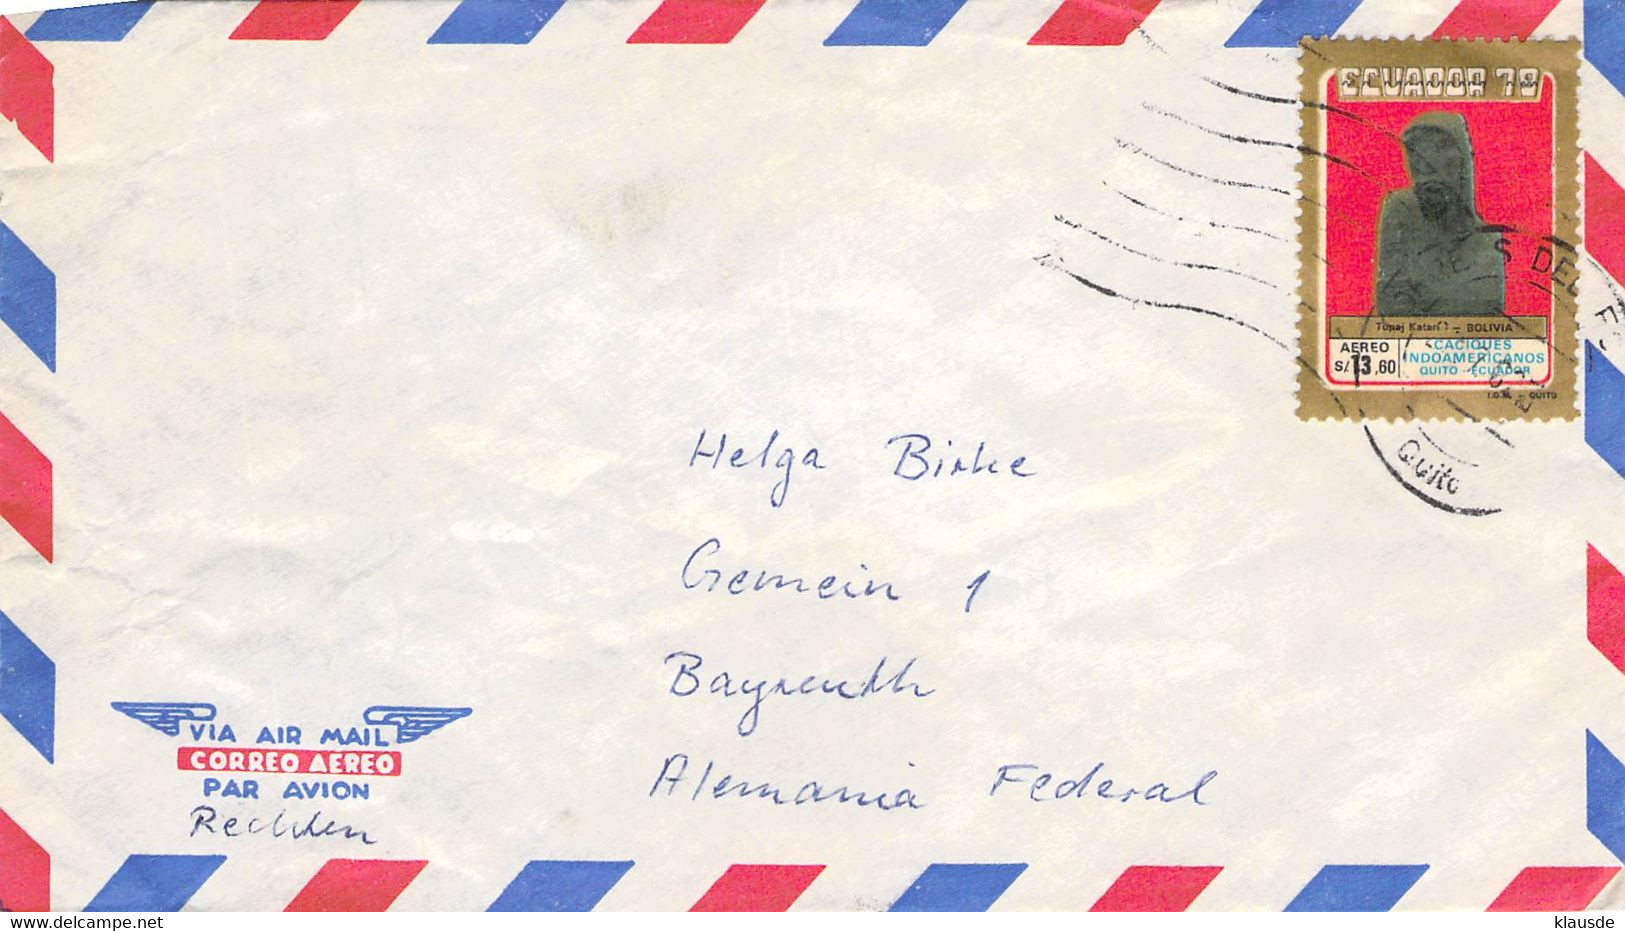 ECUADOR 78
Tupaj Katari 1 - BOLIVIA
AEREO
S/. 13,60
CACIQUES
INDOAMERICANOS
QUITO - ECUADOR
I.G.M. - QUITO
Quito
Helga Birke
Gemein 1
Bayreuth
Alemania Federal
VIA AIR MAIL
CORREO AEREO
PAR AVION
delcampe.net
klausde